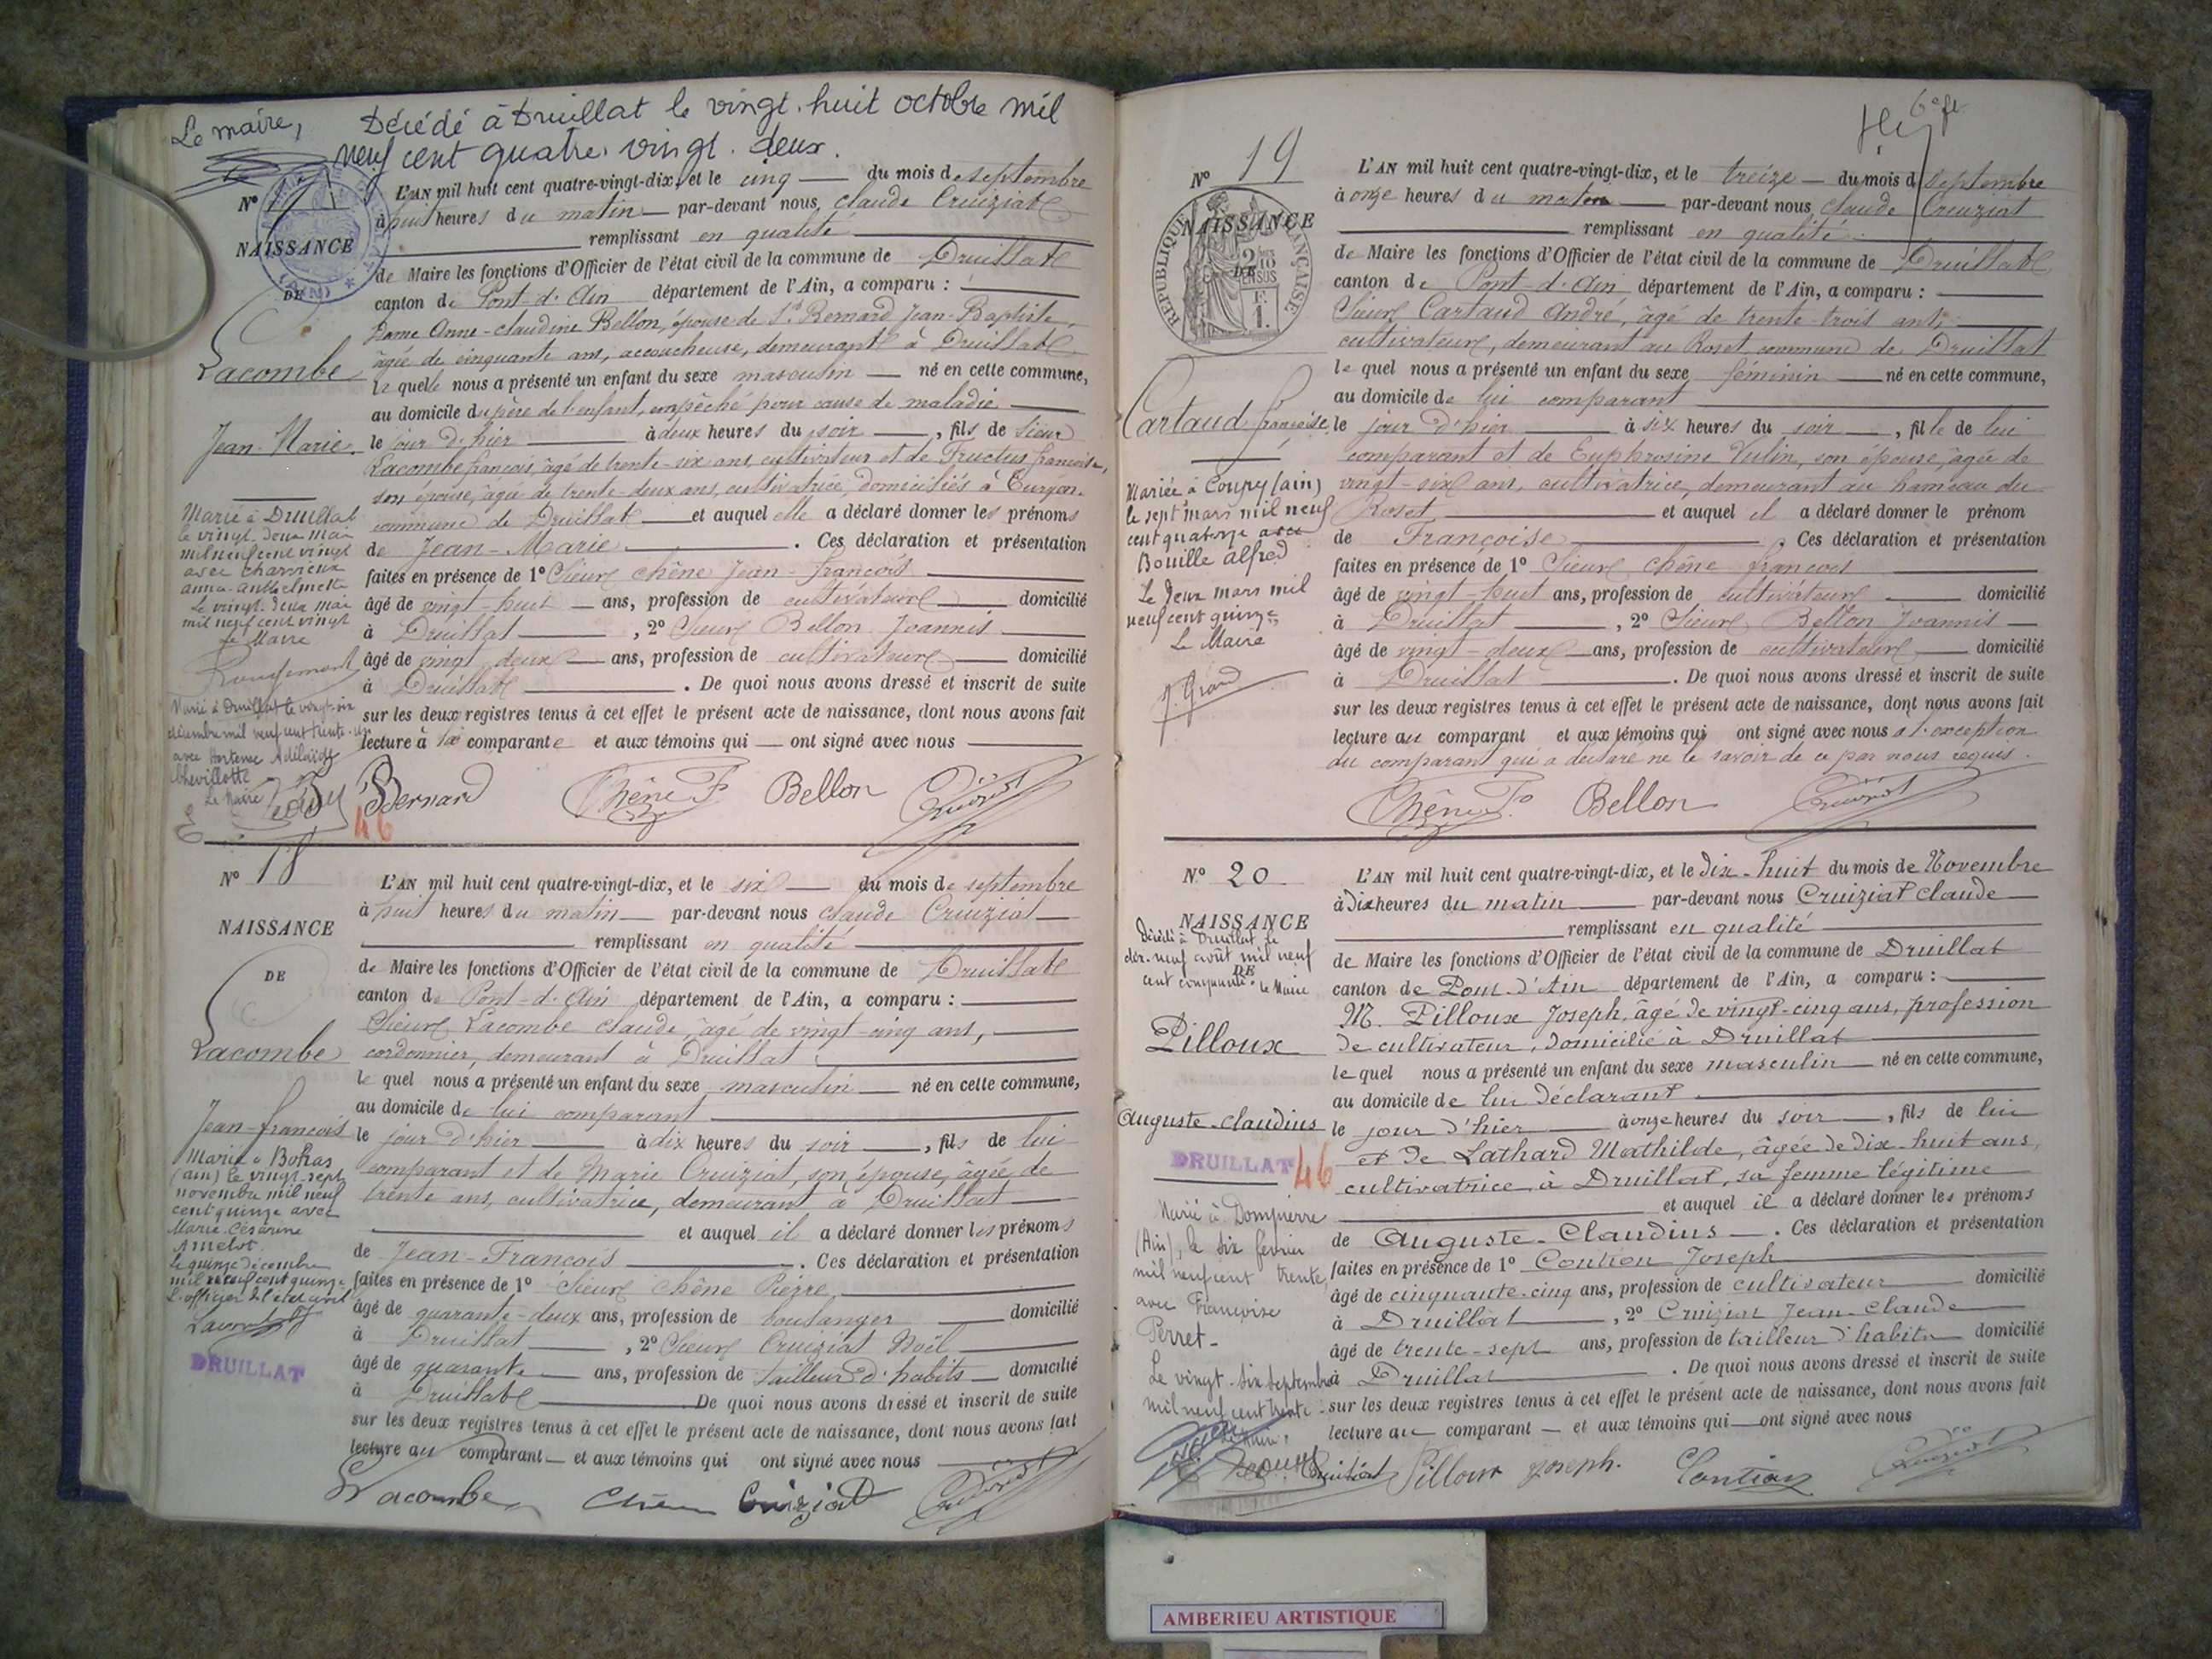 Le maire,
Décédé à Druillat le vingt-huit octobre mil
neuf cent quatre-vingt-deux.
Nº 17
NAISSANCE
DE
Lacombe
Jean-Marie
Marié à Druillat
le vingt-deux mai
mil neuf cent vingt
avec Charvieux
anna-anthelmette
Le vingt-deux mai
mil neuf cent vingt
Le Maire
Marié à Druillat le vingt-six
décembre mil neuf cent trente
avec Hortense Adélaïde
Chevillotte
Le Maire
L'AN mil huit cent quatre-vingt-dix, et le cinq du mois de septembre
à huit heures du matin par-devant nous, Claude Cruiziat
remplissant en qualité
de Maire les fonctions d'Officier de l'état civil de la commune de Druillat
canton de Pont-d'Ain département de l'Ain, a comparu :
Dame Anne-Claudine Bellon, épouse de Sr Bernard Jean-Baptiste,
âgée de cinquante ans, accoucheuse, demeurant à Druillat
la quelle nous a présenté un enfant du sexe masculin né en cette commune,
au domicile du père de l'enfant, empêché pour cause de maladie
le jour d'hier à deux heures du soir, fils de Sieur
Lacombe françois, âgé de trente-six ans, cultivateur et de Tructus françoise,
son épouse, âgée de trente-deux ans, cultivatrice, domiciliés à Turgon
commune de Druillat et auquel elle a déclaré donner les prénoms
de Jean-Marie. Ces déclaration et présentation
faites en présence de 1º Sieur Chêne Jean-françois
âgé de vingt-huit ans, profession de cultivateur domicilié
à Druillat, 2º Sieur Bellon Joannis
âgé de vingt-deux ans, profession de cultivateur domicilié
à Druillat. De quoi nous avons dressé et inscrit de suite
sur les deux registres tenus à cet effet le présent acte de naissance, dont nous avons fait
lecture à la comparante et aux témoins qui ont signé avec nous
Bernard Chêne F. Bellon Cruiziat
46
Nº 18
NAISSANCE
DE
Lacombe
Jean-françois
Marié à Bohas
(ain) le vingt-sept
novembre mil neuf
cent quinze avec
Marie-Césarine
Amelot.
Le quinze décembre
mil neuf cent quinze
L'officier de l'état civil
DRUILLAT
L'AN mil huit cent quatre-vingt-dix, et le six du mois de septembre
à huit heures du matin par-devant nous Claude Cruiziat
remplissant en qualité
de Maire les fonctions d'Officier de l'état civil de la commune de Druillat
canton de Pont-d'Ain département de l'Ain, a comparu :
Sieur Lacombe Claude, âgé de vingt-cinq ans,
cordonnier, demeurant à Druillat
le quel nous a présenté un enfant du sexe masculin né en cette commune,
au domicile de lui comparant
le jour d'hier à dix heures du soir, fils de lui
comparant et de Marie Cruiziat, son épouse, âgée de
trente ans, cultivatrice, demeurant à Druillat
et auquel il a déclaré donner les prénoms
de Jean-François. Ces déclaration et présentation
faites en présence de 1º Sieur Chêne Pierre,
âgé de quarante-deux ans, profession de boulanger domicilié
à Druillat, 2º Sieur Cruiziat Noël
âgé de quarante ans, profession de tailleur d'habits domicilié
à Druillat De quoi nous avons dressé et inscrit de suite
sur les deux registres tenus à cet effet le présent acte de naissance, dont nous avons fait
lecture au comparant et aux témoins qui ont signé avec nous
Lacombe Chêne Cruiziat Cruiziat
6e ft
Nº 19
RÉPUBLIQUE FRANÇAISE
NAISSANCE
DE
Cartaud françoise
Mariée à Coupy (ain)
le sept mars mil neuf
cent quatorze avec
Bouille alfred
Le deux mars mil
neuf cent quinze
Le Maire
L'AN mil huit cent quatre-vingt-dix, et le treize du mois d septembre
à onze heures du matin par-devant nous Claude Cruiziat
remplissant en qualité
de Maire les fonctions d'Officier de l'état civil de la commune de Druillat
canton de Pont-d'Ain département de l'Ain, a comparu :
Sieur Cartaud André, âgé de trente-trois ans,
cultivateur, demeurant au Roset commune de Druillat
le quel nous a présenté un enfant du sexe féminin né en cette commune,
au domicile de lui comparant
le jour d'hier à six heures du soir, fille de lui
comparant et de Euphrosine Vulin, son épouse, âgée de
vingt-six ans, cultivatrice, demeurant au hameau du
Roset et auquel il a déclaré donner le prénom
de Françoise. Ces déclaration et présentation
faites en présence de 1º Sieur Chêne françois
âgé de vingt-huit ans, profession de cultivateur domicilié
à Druillat, 2º Sieur Bellon Joannis
âgé de vingt-deux ans, profession de cultivateur domicilié
à Druillat. De quoi nous avons dressé et inscrit de suite
sur les deux registres tenus à cet effet le présent acte de naissance, dont nous avons fait
lecture au comparant et aux témoins qui ont signé avec nous à l'exception
du comparant qui a déclaré ne le savoir de ce par nous requis.
Chêne F. Bellon Cruiziat
Nº 20
NAISSANCE
DE
Décédé à Druillat le
dix-neuf août mil neuf
cent cinquante. Le Maire
Pilloux
Auguste-Claudius
DRUILLAT 46
Marié à Dompierre
(Ain), le six février
mil neuf cent trente,
avec Françoise
Perret-
Le vingt-six septembre
mil neuf cent trente
L'AN mil huit cent quatre-vingt-dix, et le Dix-huit du mois de Novembre
à Dix heures du matin par-devant nous Cruiziat Claude
remplissant en qualité
de Maire les fonctions d'Officier de l'état civil de la commune de Druillat
canton de Pont-d'Ain département de l'Ain, a comparu :
M. Pilloux Joseph, âgé de vingt-cinq ans, profession
de cultivateur, domicilié à Druillat
le quel nous a présenté un enfant du sexe masculin né en cette commune,
au domicile de lui déclarant
le jour d'hier à onze heures du soir, fils de lui
et de Lathard Mathilde, âgée de Dix-huit ans,
cultivatrice à Druillat, sa femme légitime
et auquel il a déclaré donner les prénoms
de Auguste-Claudius. Ces déclaration et présentation
faites en présence de 1º Contion Joseph
âgé de cinquante-cinq ans, profession de cultivateur domicilié
à Druillat, 2º Cruiziat Jean-Claude
âgé de trente-sept ans, profession de tailleur d'habits domicilié
à Druillat. De quoi nous avons dressé et inscrit de suite
sur les deux registres tenus à cet effet le présent acte de naissance, dont nous avons fait
lecture au comparant et aux témoins qui ont signé avec nous
Cruiziat Pilloux Joseph. Contion Cruiziat
AMBERIEU ARTISTIQUE